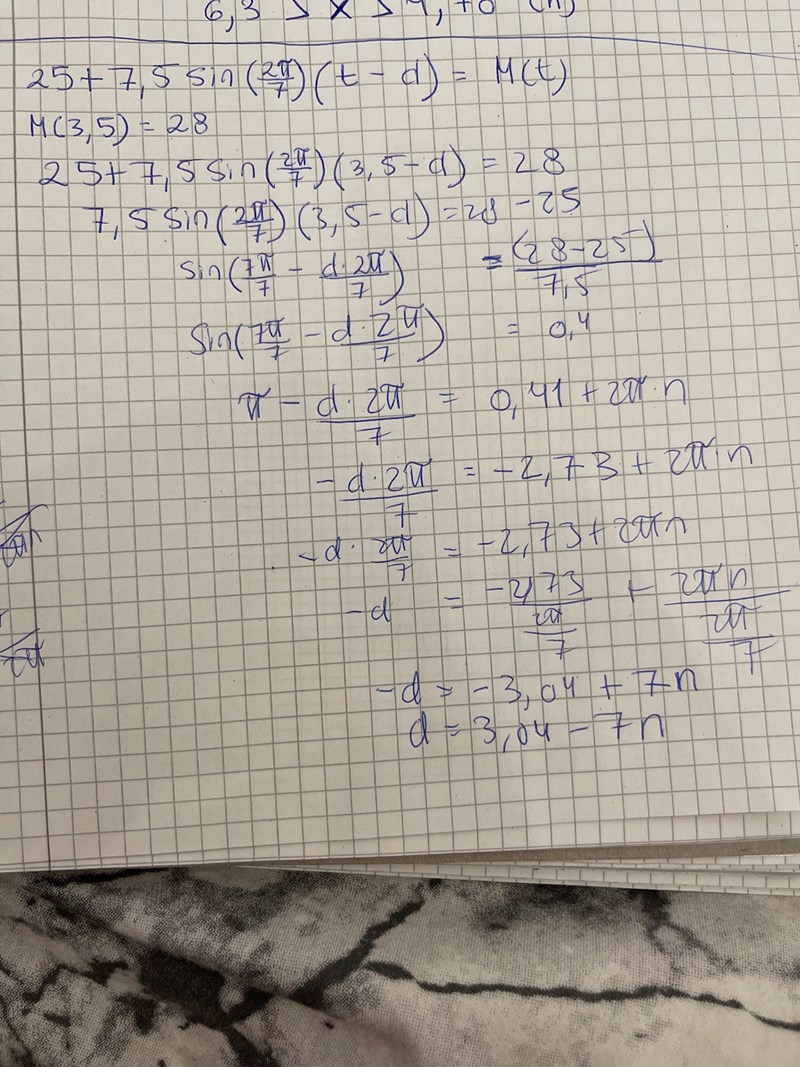 6,3 > x > 4,70 (h)
25+7,5 sin(2π/7)(t-d) = M(t)
M(3,5) = 28
25+7,5 sin(2π/7)(3,5-d) = 28
7,5 sin(2π/7)(3,5-d) = 28 - 25
sin(7π/7 - d·2π/7) = (28-25)/7,5
Sin(7π/7 - d·2π/7) = 0,4
π - d·2π/7 = 0,41 + 2π·n
- d·2π/7 = -2,73 + 2π·n
-d·2π/7 = -2,73+2πn
-d = -2,73/(2π/7) + 2πn/(2π/7)
-d = -3,04 + 7n
d = 3,04 - 7n